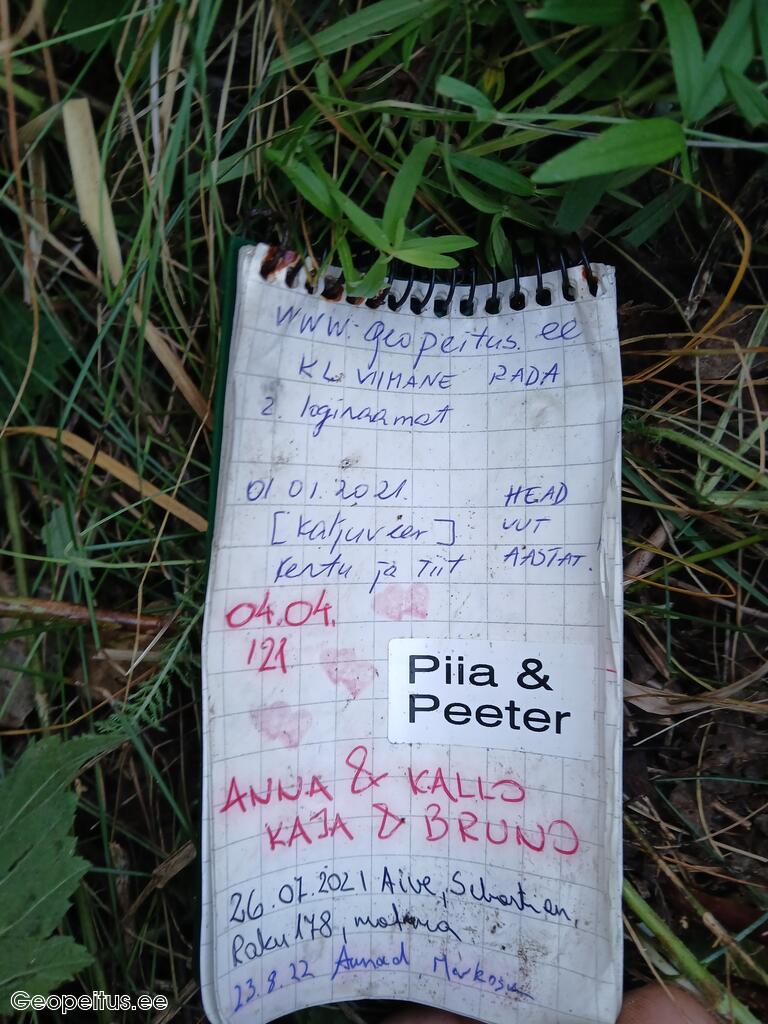 www.geopeitus.ee
KL VIIMANE RADA
2. logiraamat
01.01.2021. HEAD
[Katjuveer] UUT
Kertu ja Tiit AASTAT.
04.04.
'21
Piia &
Peeter
ANNA & KALLO
KAJA & BRUNO
26.07.2021 Aive, Sebastian,
Raku178,
23.8.22
Geopeitus.ee